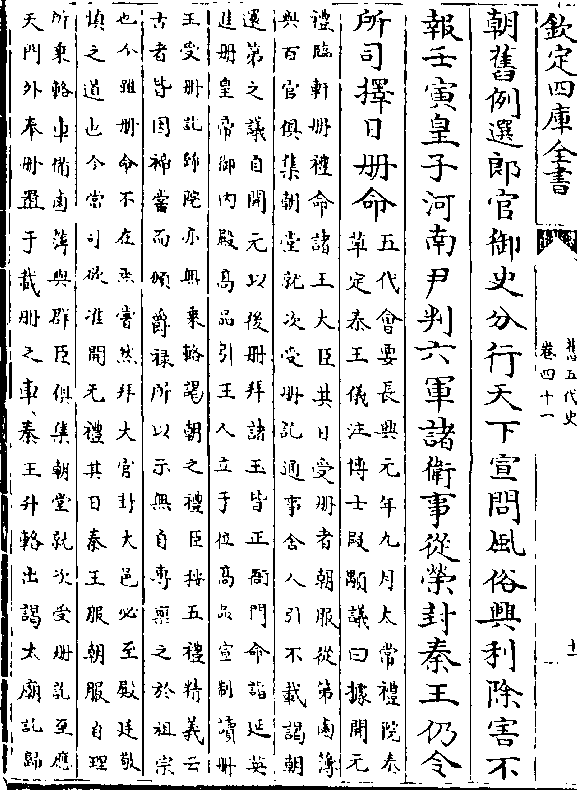 欽定四庫全書
舊五代史
卷四十一
十一
朝舊例選郎官御史分行天下宣問風俗興利除害不
報壬寅皇子河南尹判六軍諸衛事從榮封秦王仍令
所司擇日册命
五代會要長興元年九月太常禮院奏
草定秦王儀注博士段顒議曰據開元
禮臨軒册禮命諸王大臣其日受册者朝服從第鹵簿
與百官俱集朝堂就次受册訖通事舍人引不載謁朝
還第之議自開元以後册拜諸王皆正衙門命詣延英
進册皇帝御内殿高品引王入立于位高品宣制讀册
王受册訖歸院亦無乗輅謁朝之禮臣按五禮精義云
古者皆因禘嘗而頒爵禄所以示無自專禀之於祖宗
也今雖册命不在烝嘗然拜大官封大邑必至殿廷敬
慎之道也今當司欲准開元禮其日秦王服朝服自理
所乗輅車備鹵簿與群臣俱集朝堂就次受册訖至應
天門外奉册置于載册之車秦王升輅出謁太廟訖歸